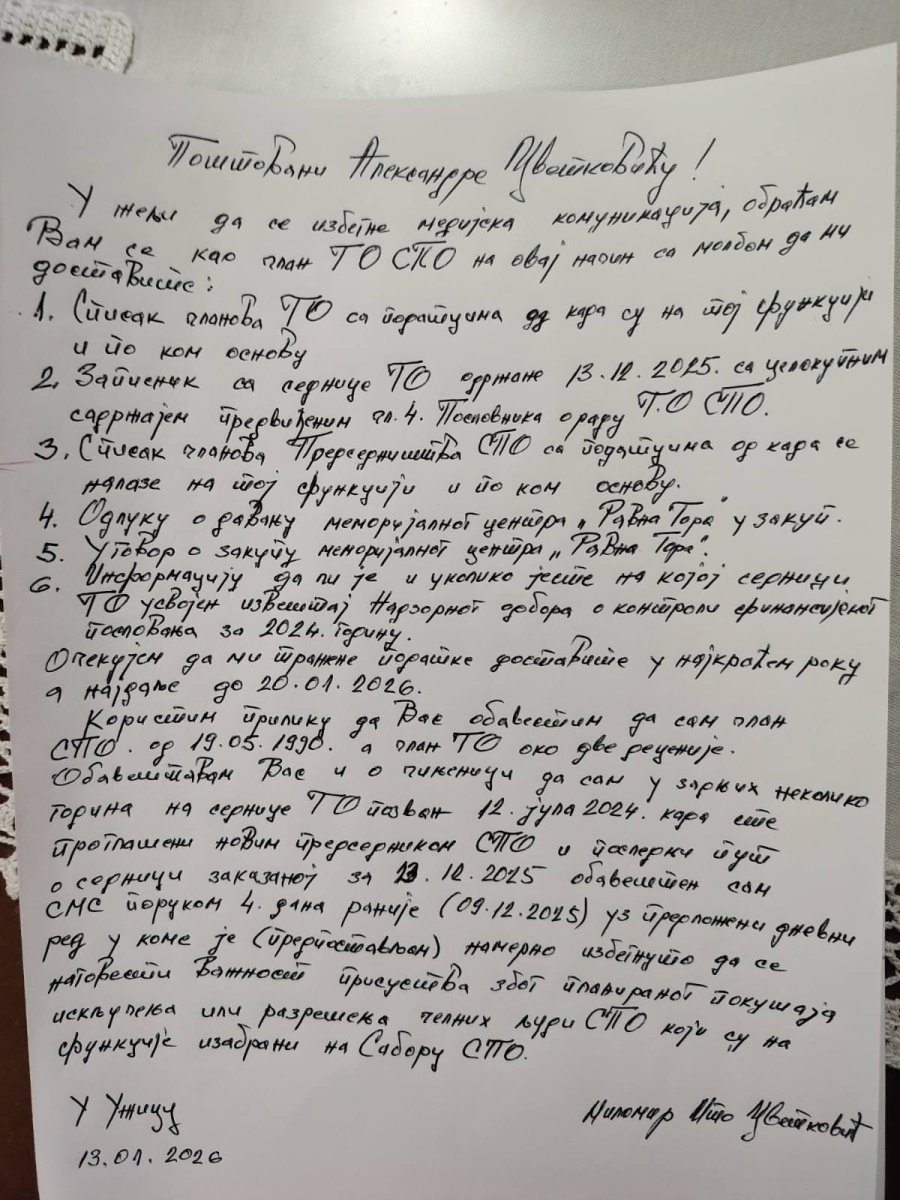 Поштовани Александре Цветковићу!
У жељи да се избегне медијска комуникација, обраћам
Вам се као члан ТО СПО на овај начин са молбом да ми
доставите:
1. Списак чланова ТО са подацима од када су на тој функцији
и по ком основу
2. Записник са седнице ТО одржане 13.12.2025. са целокупним
садржајем предвиђеним чл.4. Пословника о раду Т.О СПО.
3. Списак чланова Председништва СПО са подацима од када се
налазе на тој функцији и по ком основу.
4. Одлуку о давању меморијалног центра „Равна Гора" у закуп.
5. Уговор о закупу меморијалног центра „Равна Гора".
6. Информацију да ли је и уколико јесте на којој седници
ТО усвојен извештај Надзорног одбора о контроли финансијског
пословања за 2024. годину.
Очекујем да ми тражене податке доставите у најкраћем року
а најдаље до 20.01.2026.
Користим прилику да Вас обавестим да сам члан
СПО. од 19.05.1990. а члан ТО око две деценије.
Обавештавам Вас и о чињеници да сам у задњих неколико
година на седнице ТО позван 12. јула 2024. када сте
проглашени новим председником СПО и последњи пут
о седници заказаној за 13.12.2025 обавештен сам
СМС поруком 4. дана раније (09.12.2025) уз предложени дневни
ред у коме је (предпостављам) намерно избегнуто да се
наговести важност присуства због планираног покушаја
искључења или разрешења челних људи СПО који су на
функције изабрани на Сабору СПО.
У Ужицу
13.01.2026
Миломир Цветковић